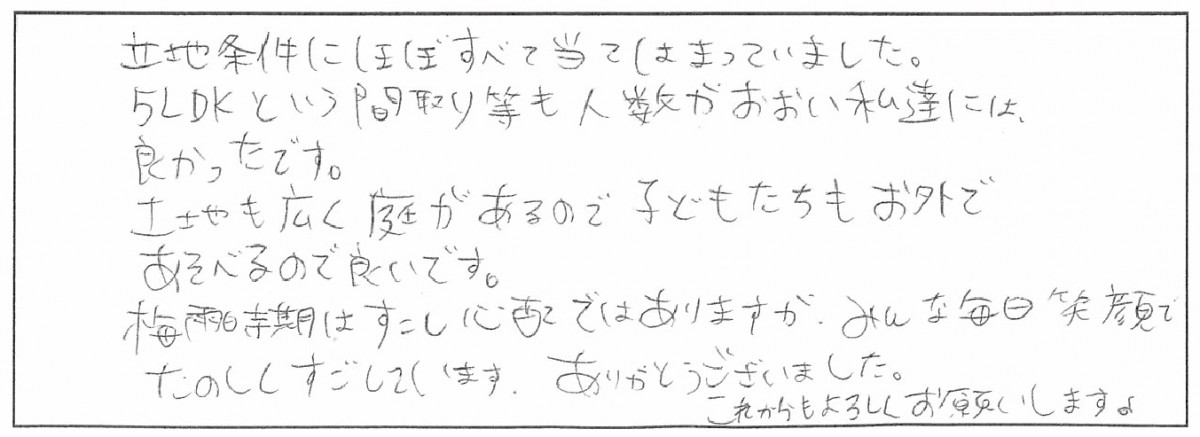 立地条件にほぼすべて当てはまっていました。
5LDKという間取り等も人数がおおい私達には、
良かったです。
土地も広く庭があるので子どもたちもお外で
あそべるので良いです。
梅雨時期はすこし心配ではありますが、みんな毎日笑顔で
たのしくすごしています。ありがとうございました。
これからもよろしくお願いします。